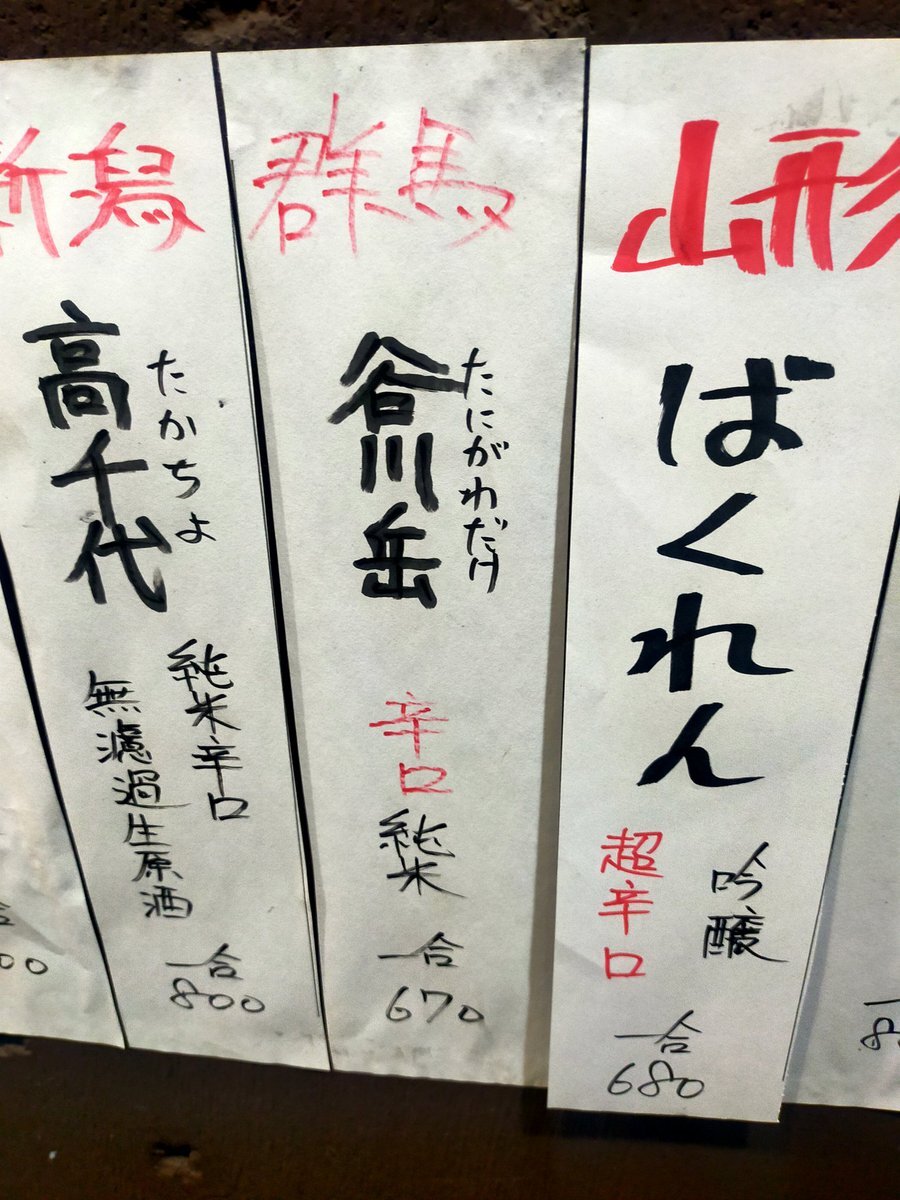 山形
ばくれん
吟醸
超辛口
一合
680
群馬
谷川岳
たにがわだけ
辛口
純米
一合
670
新潟
高千代
たかちよ
純米辛口
無濾過生原酒
一合
800